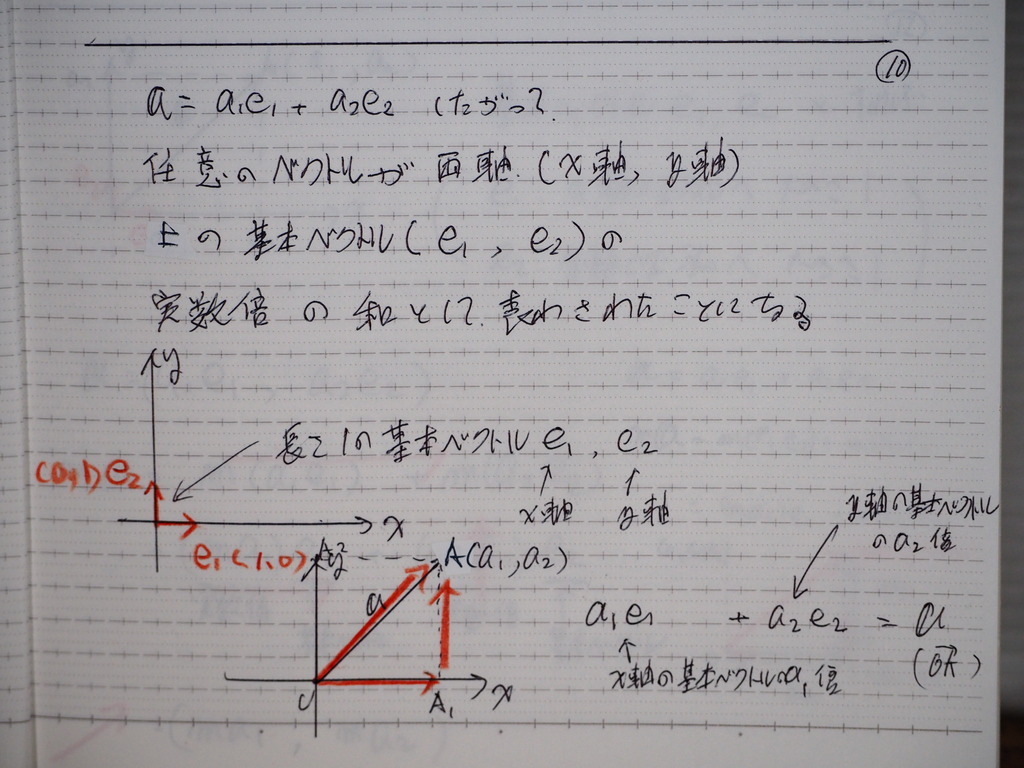 ⑩
a = a₁e₁ + a₂e₂ したがって
任意のベクトルが両軸(x軸, y軸)
上の基本ベクトル(e₁, e₂)の
実数倍の和として表わされたことになる
y
長さ1の基本ベクトル e₁, e₂
(0,1)e₂
x軸 y軸
x
e₁(1,0)
y軸の基本ベクトル
のa₂倍
A₂ A(a₁, a₂)
a
a₁e₁ + a₂e₂ = a
x軸の基本ベクトルのa₁倍 (OA)
O A₁ x